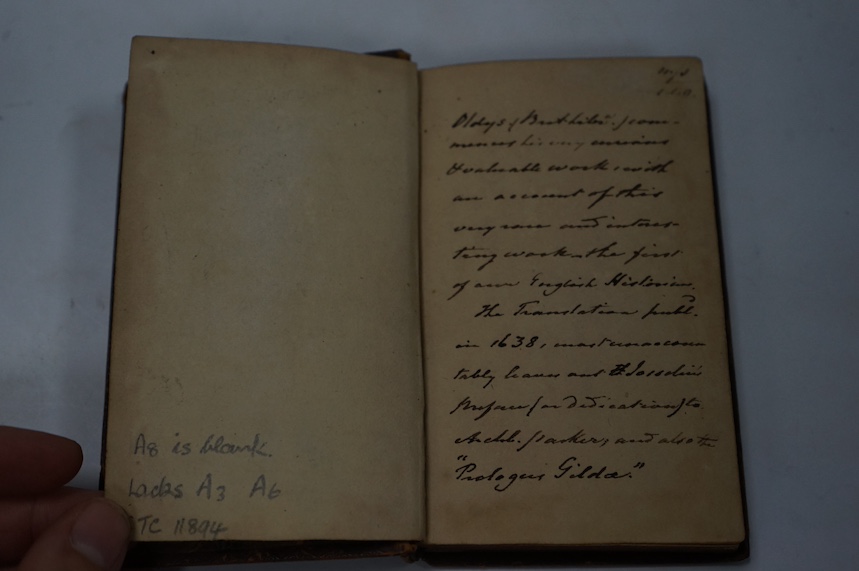 A8 is blank.
Lacks A3 A6
STC 11894
Oldys (Brit. Libr.) com-
mences his very curious
& valuable work, with
an account of this
very rare and interes-
ting work, the first
of our English Historians.
The Translation publ.
in 1638, most unaccoun
tably leaves out Josselin's
Preface (or Dedication) to
Archb. Parker, and also the
"Prologus Gildæ."